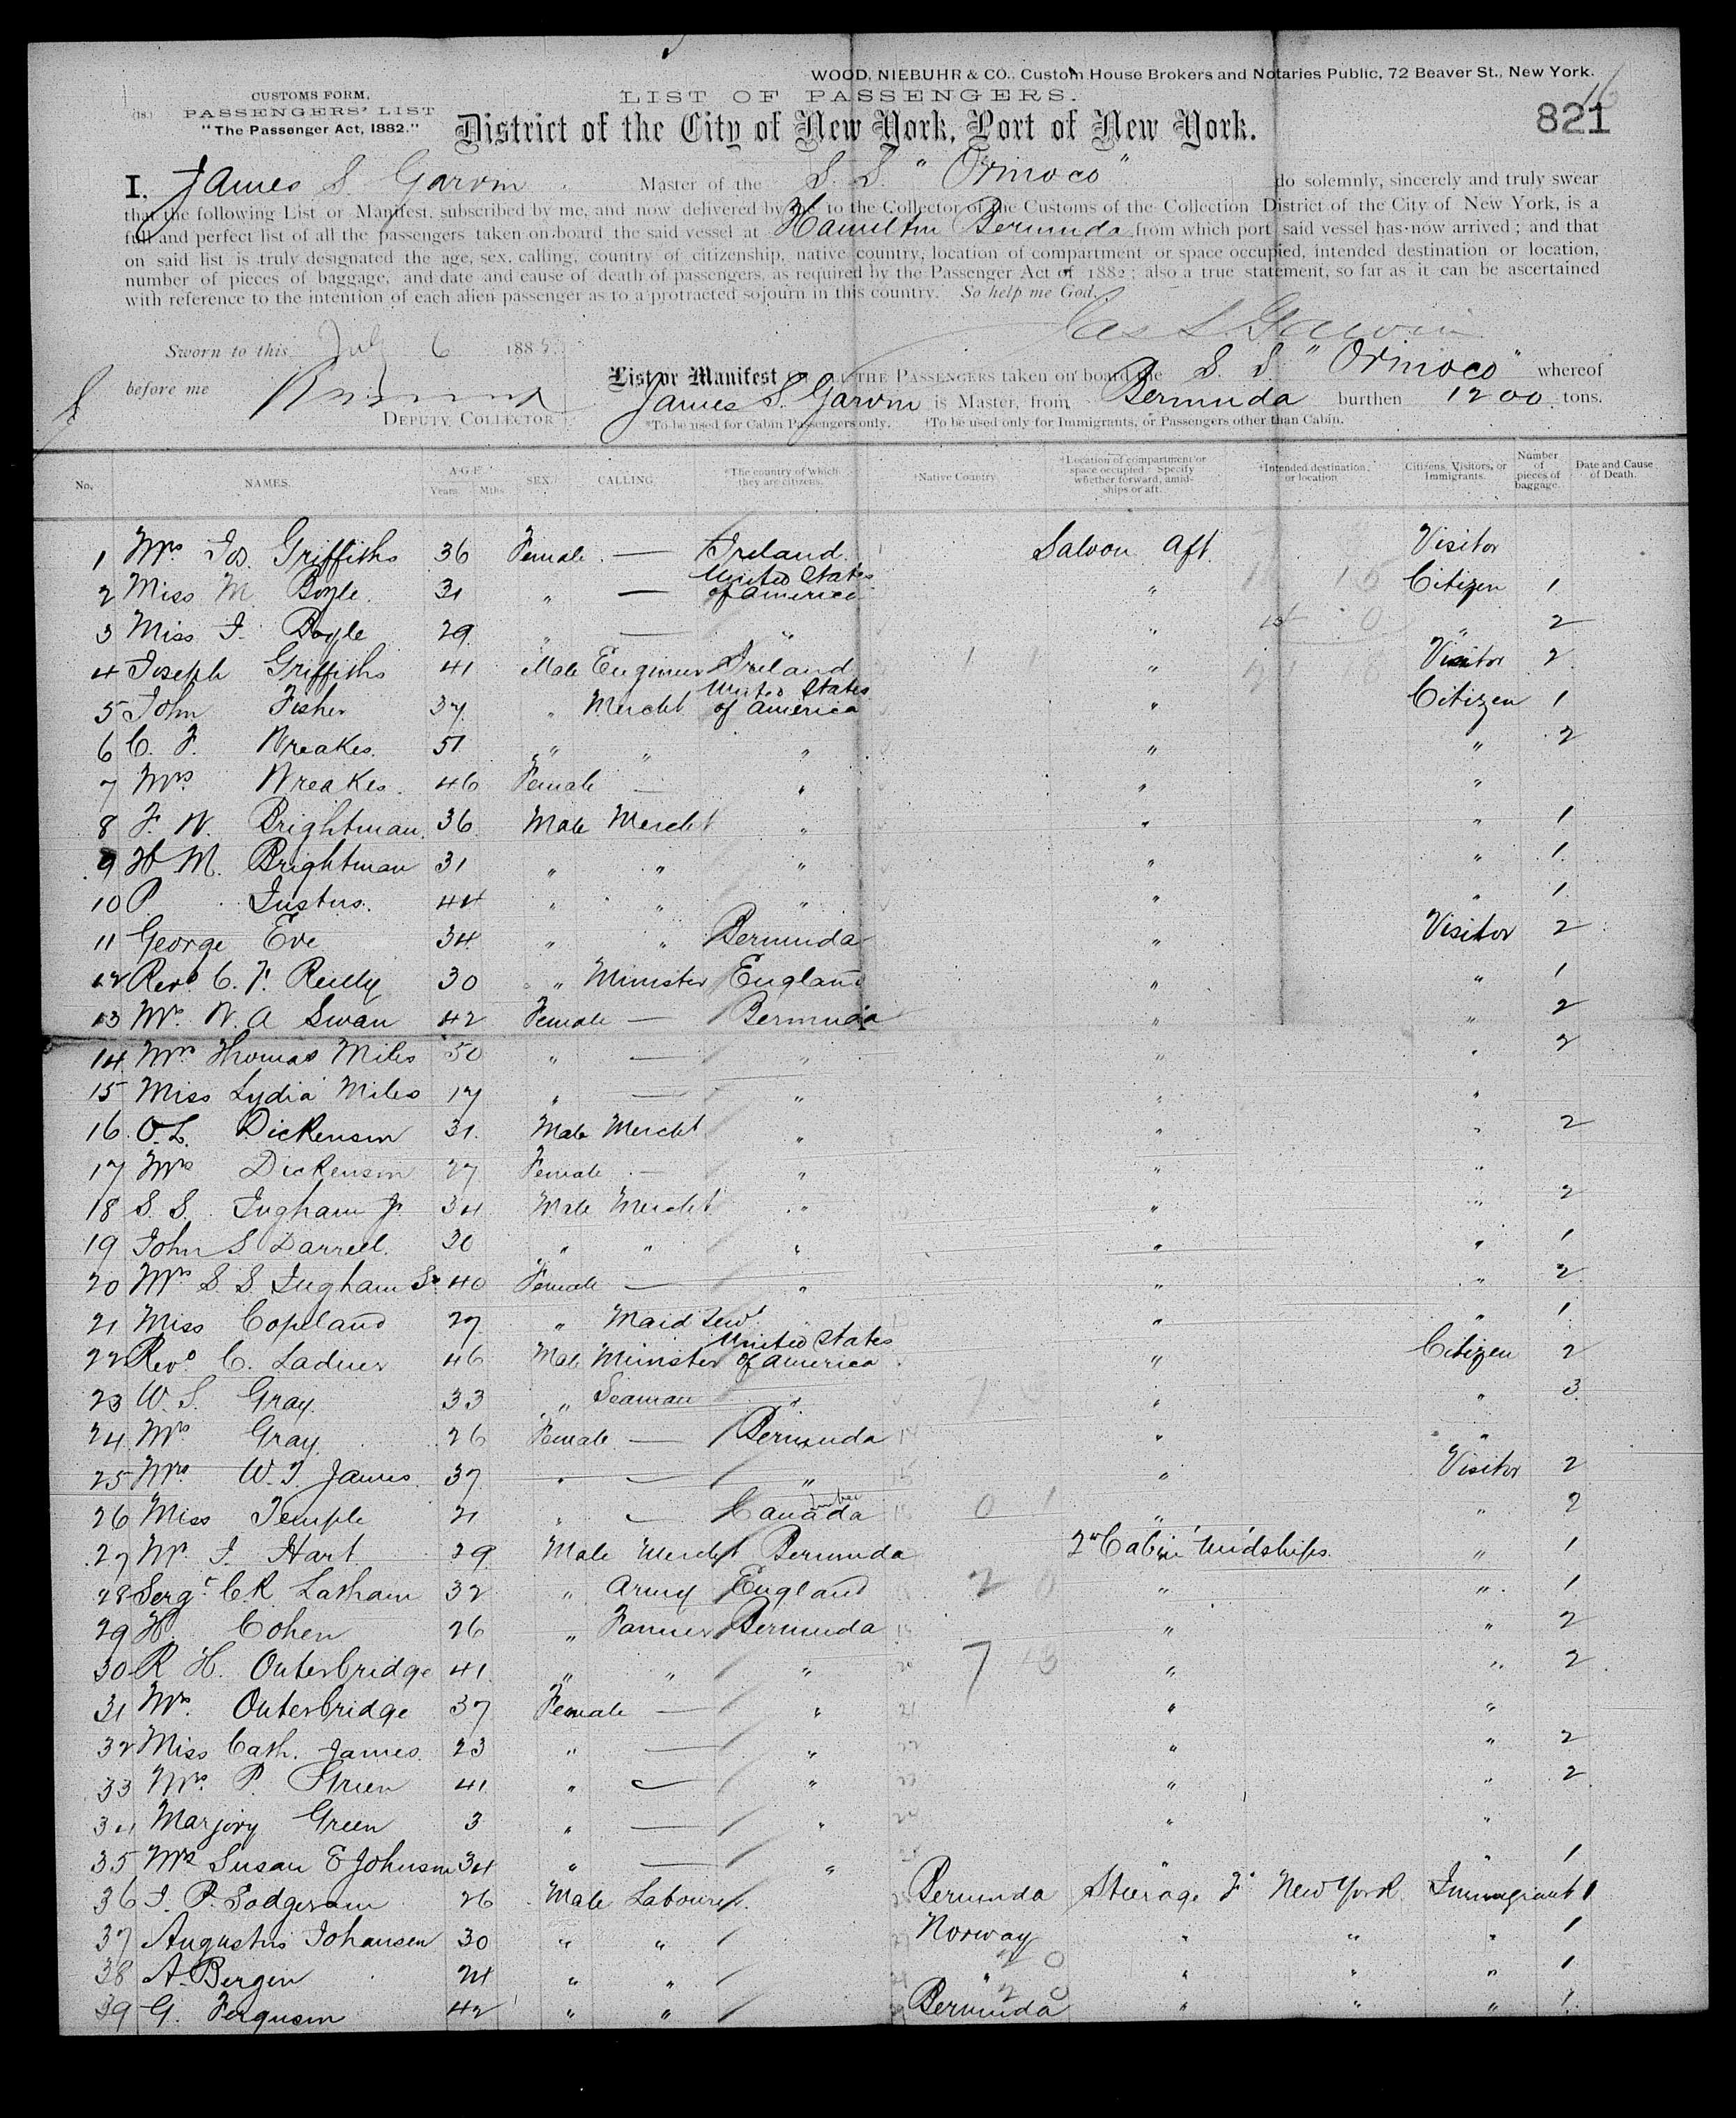 WOOD, NIEBUHR & CO., Custom House Brokers and Notaries Public, 72 Beaver St., New York.
CUSTOMS FORM, LIST OF PASSENGERS. 16
(18.) PASSENGERS' LIST 821
"The Passenger Act, 1882." District of the City of New York, Port of New York.
I, James S. Garvin Master of the S. S. "Orinoco" do solemnly, sincerely and truly swear
that the following List or Manifest, subscribed by me, and now delivered by me to the Collector of the Customs of the Collection District of the City of New York, is a
full and perfect list of all the passengers taken on board the said vessel at Hamilton Bermuda from which port said vessel has now arrived; and that
on said list is truly designated the age, sex, calling, country of citizenship, native country, location of compartment or space occupied, intended destination or location,
number of pieces of baggage, and date and cause of death of passengers, as required by the Passenger Act of 1882; also a true statement, so far as it can be ascertained
with reference to the intention of each alien passenger as to a protracted sojourn in this country. So help me God.
Jas S. Garvin
Sworn to this July 6 188
before me List or Manifest OF ALL THE PASSENGERS taken on board the S. S. "Orinoco" whereof
DEPUTY COLLECTOR James S. Garvin is Master, from Bermuda burthen 1200 tons.
*To be used for Cabin Passengers only. †To be used only for Immigrants, or Passengers other than Cabin.
No. NAMES. AGE. Years. Mths. SEX. CALLING. *The country of which they are citizens. †Native Country †Location of compartment or space occupied. Specify whether forward, amidships or aft. †Intended destination or location Citizens, Visitors, or Immigrants. Number of pieces of baggage. Date and Cause of Death.
1 Mrs Jos. Griffiths 36 Female — Ireland Saloon Aft Visitor
2 Miss M Boyle 31 " — United States of America " Citizen 1
3 Miss J. Boyle 29 " — " " " 2
4 Joseph Griffiths 41 Male Engineer Ireland " Visitor 2
5 John Fisher 37 " Mercht United States of America " Citizen 1
6 C. F. Wreakes 51 " " " " " 2
7 Mrs Wreakes 46 Female — " " "
8 F. W. Brightman 36 Male Mercht " " " 1
9 H M. Brightman 31 " " " " " 1
10 P Justus 44 " " " " " 1
11 George Eve 34 " " Bermuda " Visitor 2
12 Revd C. F. Reilly 30 " Minister England " " 1
13 Mrs W. A Swan 42 Female — Bermuda " " 2
14 Mrs Thomas Miles 50 " — " " " 2
15 Miss Lydia Miles 17 " — " " "
16 O. L. Dickenson 31 Male Mercht " " " 2
17 Mrs Dickenson 27 Female — " " "
18 S. S. Ingham Jr 34 Male Mercht " " " 2
19 John S Darrell 30 " " " " " 1
20 Mrs S. S. Ingham Sr 40 Female — " " " 2
21 Miss Copeland 27 " Maid Sewt " " " 1
22 Revd C. Ladner 46 Male Minister United States of America " Citizen 2
23 W. S. Gray 33 " Seaman " " " 3
24 Mrs Gray 26 Female — Bermuda " "
25 Mrs W. J. James 37 " — " " Visitor 2
26 Miss Temple 21 " — Canada " " 2
27 Mr J. Hart 29 Male Mercht Bermuda 2nd Cabin Midships " 1
28 Sergt C. R Latham 32 " Army England " " 1
29 H. Cohen 26 " Farmer Bermuda " " 2
30 R H. Outerbridge 41 " " " " " 2
31 Mrs Outerbridge 37 Female — " " "
32 Miss Cath. James 23 " — " " " 2
33 Mrs P. Green 41 " — " " " 2
34 Marjory Green 3 " — " " "
35 Mrs Susan E Johnson 34 " — " " " 1
36 J. P. 26 Male Labourer Bermuda Steerage F New York Immigrant 1
37 Augustus Johansen 30 " " Norway " " " 1
38 A. Bergen 24 " " " " " " 1
39 G. Ferguson 42 " " Bermuda " " " 1